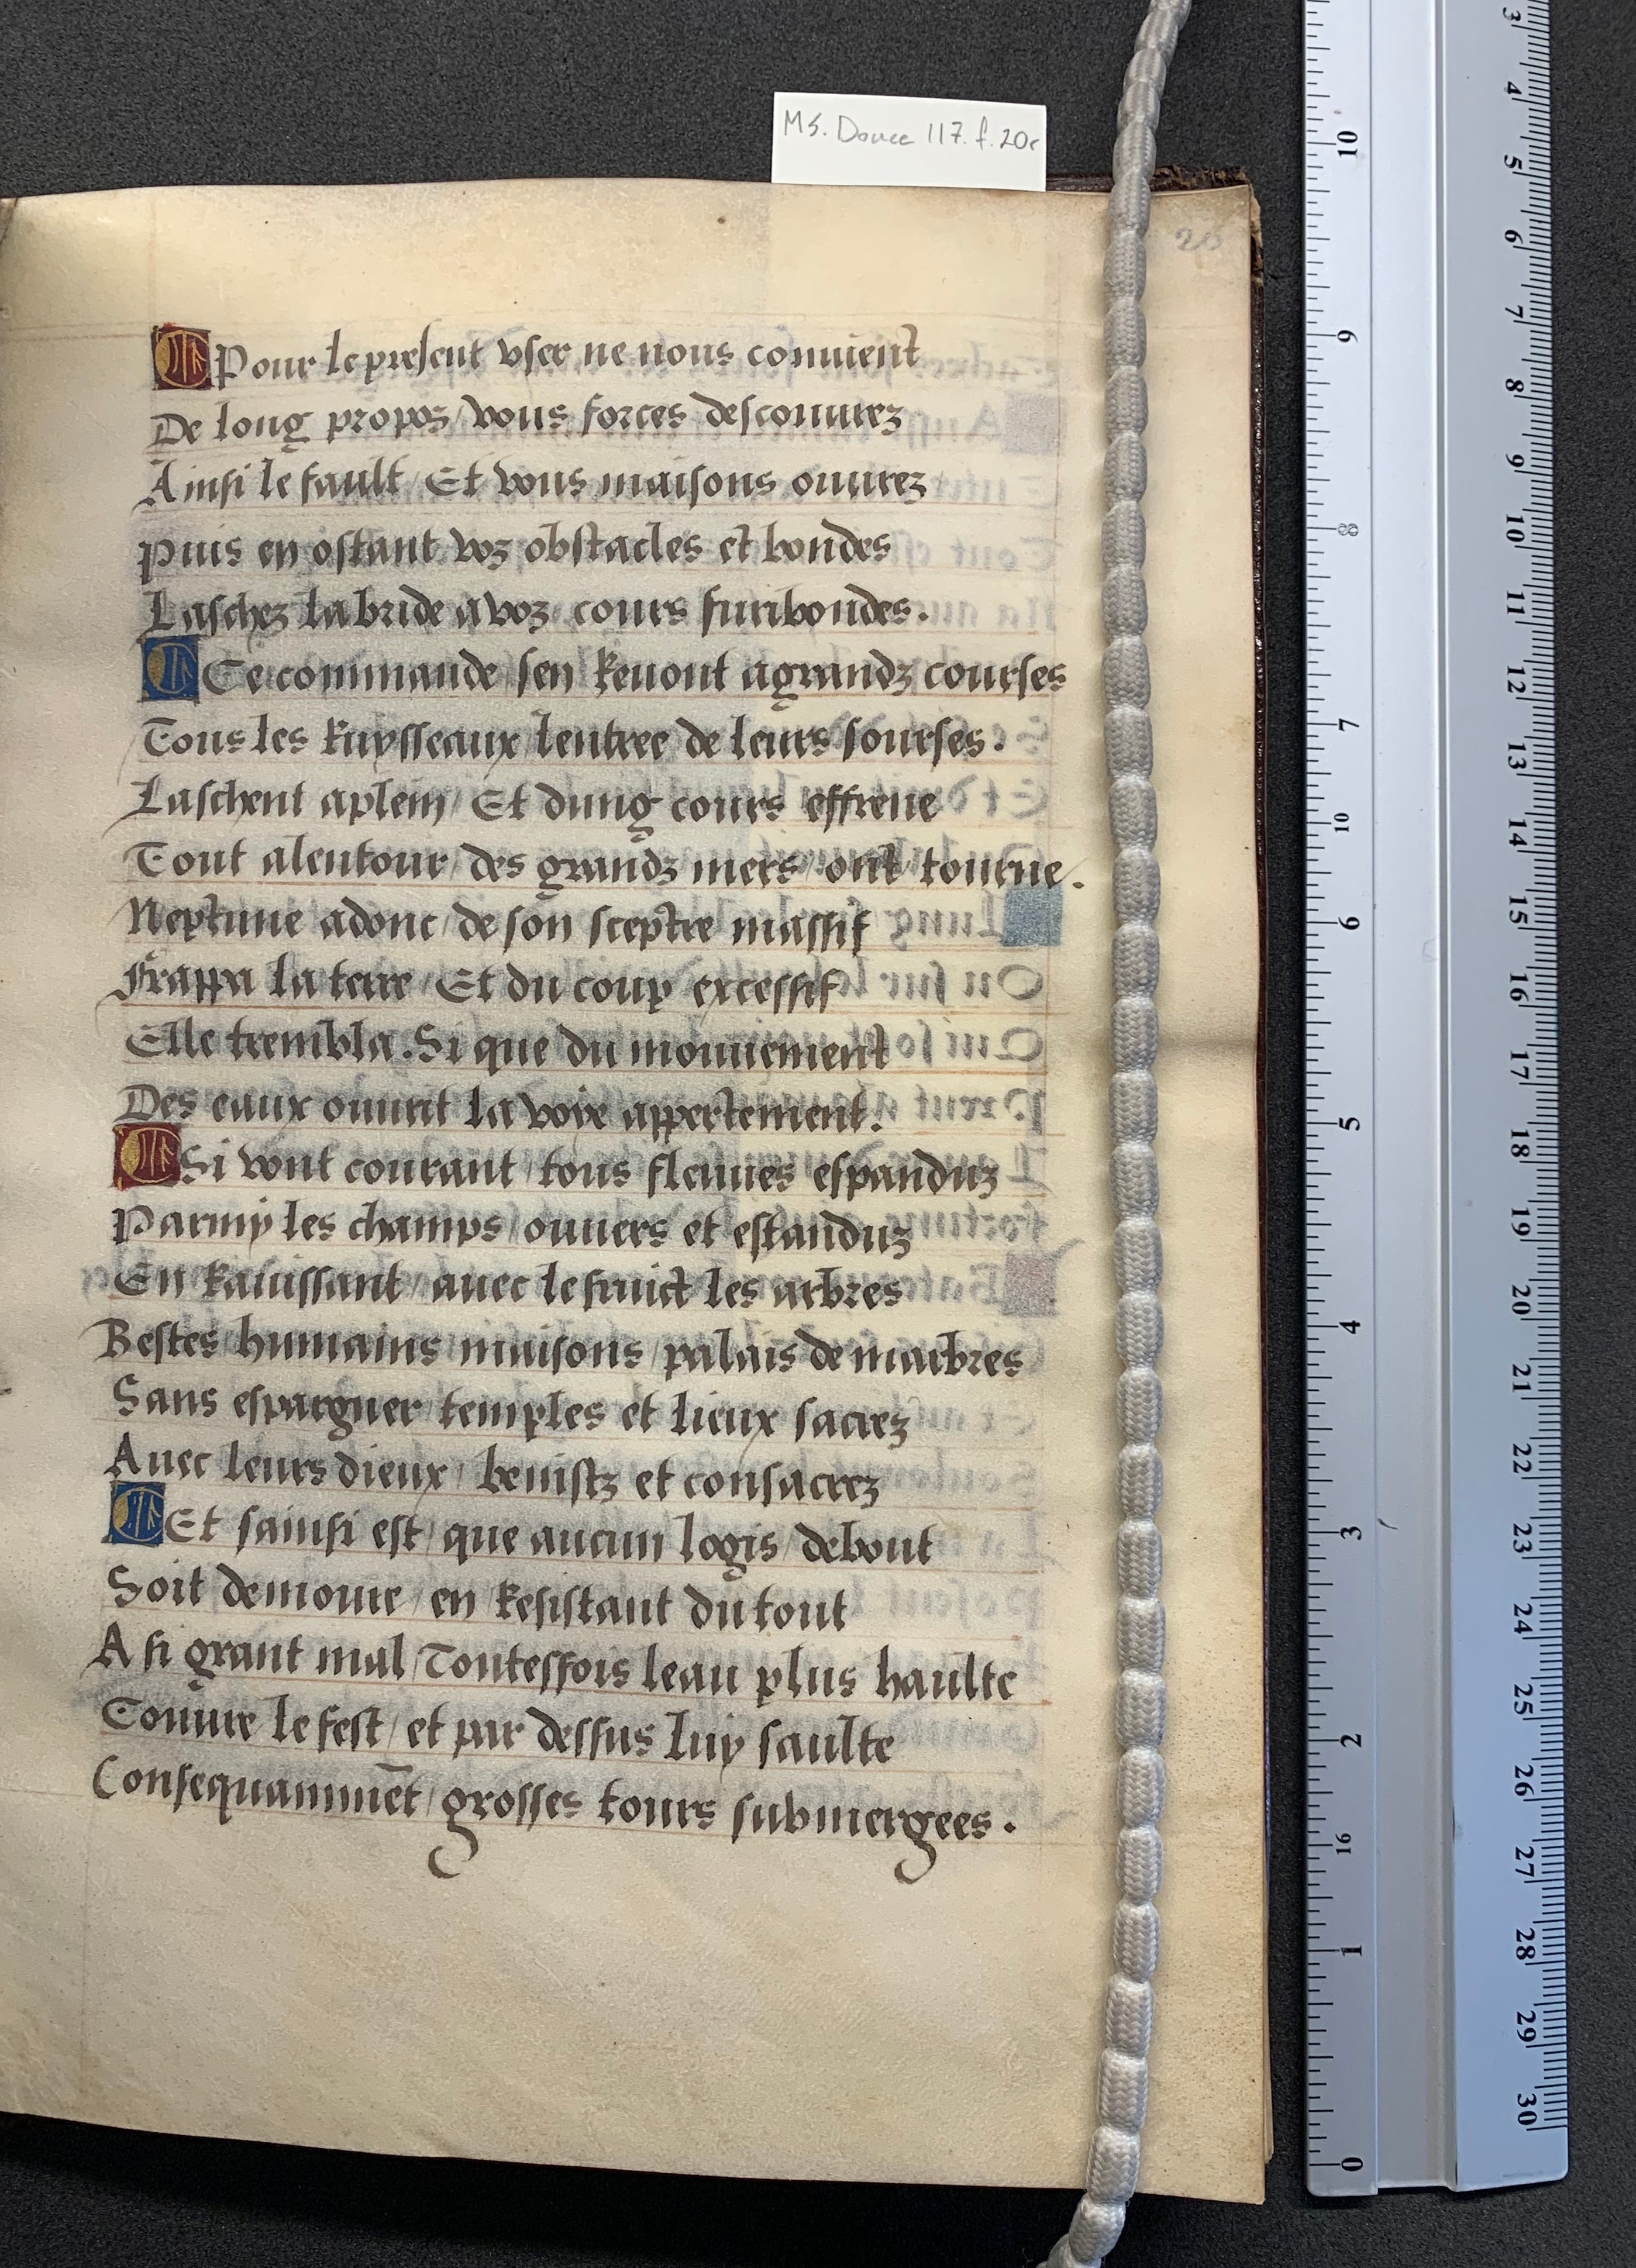 MS. Douce 117. f. 20r
20
¶ Pour le present vser ne nous conuient
De long propoz / vous forces descouurez
Ainsi le fault / Et vous maisons ouurez
Puis en ostant voz obstacles et bondes
Laschez la bride a voz cours furibondes.
¶ Ce commande / sen Reuont a grandz courses
Tous les Ruysseaux / lentree de leurs sourses.
Laschent a plein / Et dung cours effrene
Tout alentour / des grandz mers / ont tourne.
Neptune adonc / de son sceptre massif
Frappa la terre / Et du coup excessif
Elle trembla. Si que du mouuement
Des eaux ouurit la voye appertement.
¶ Si vont courant / tous fleuues espanduz
Parmy les champs / ouuers et estanduz
En Rauissant / auec le fruict les arbres
Bestes / humains / maisons / palais de marbres
Sans espargner / temples et lieux sacrez
Auec leurs dieux / benistz et consacrez
¶ Et sainsi est / que aucun logis / debout
Soit demoure / en Resistant du tout
A si grant mal / Toutesfois leau plus haulte
Couure le fest / et par dessus luy saulte
Consequammēt / grosses tours submergees.